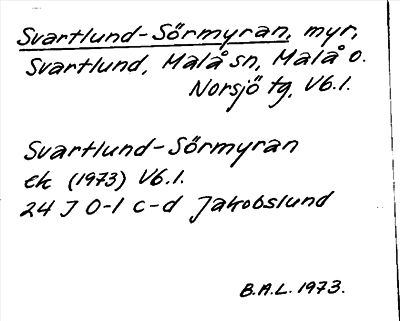 Svartlund-Sörmyran, myr,
Svartlund, Malå sn, Malå o.
Norsjö tg, Vb.l.
Svartlund-Sörmyran
ek (1973) Vb.l.
24 J 0-1 c-d Jakobslund
B.A.L. 1973.